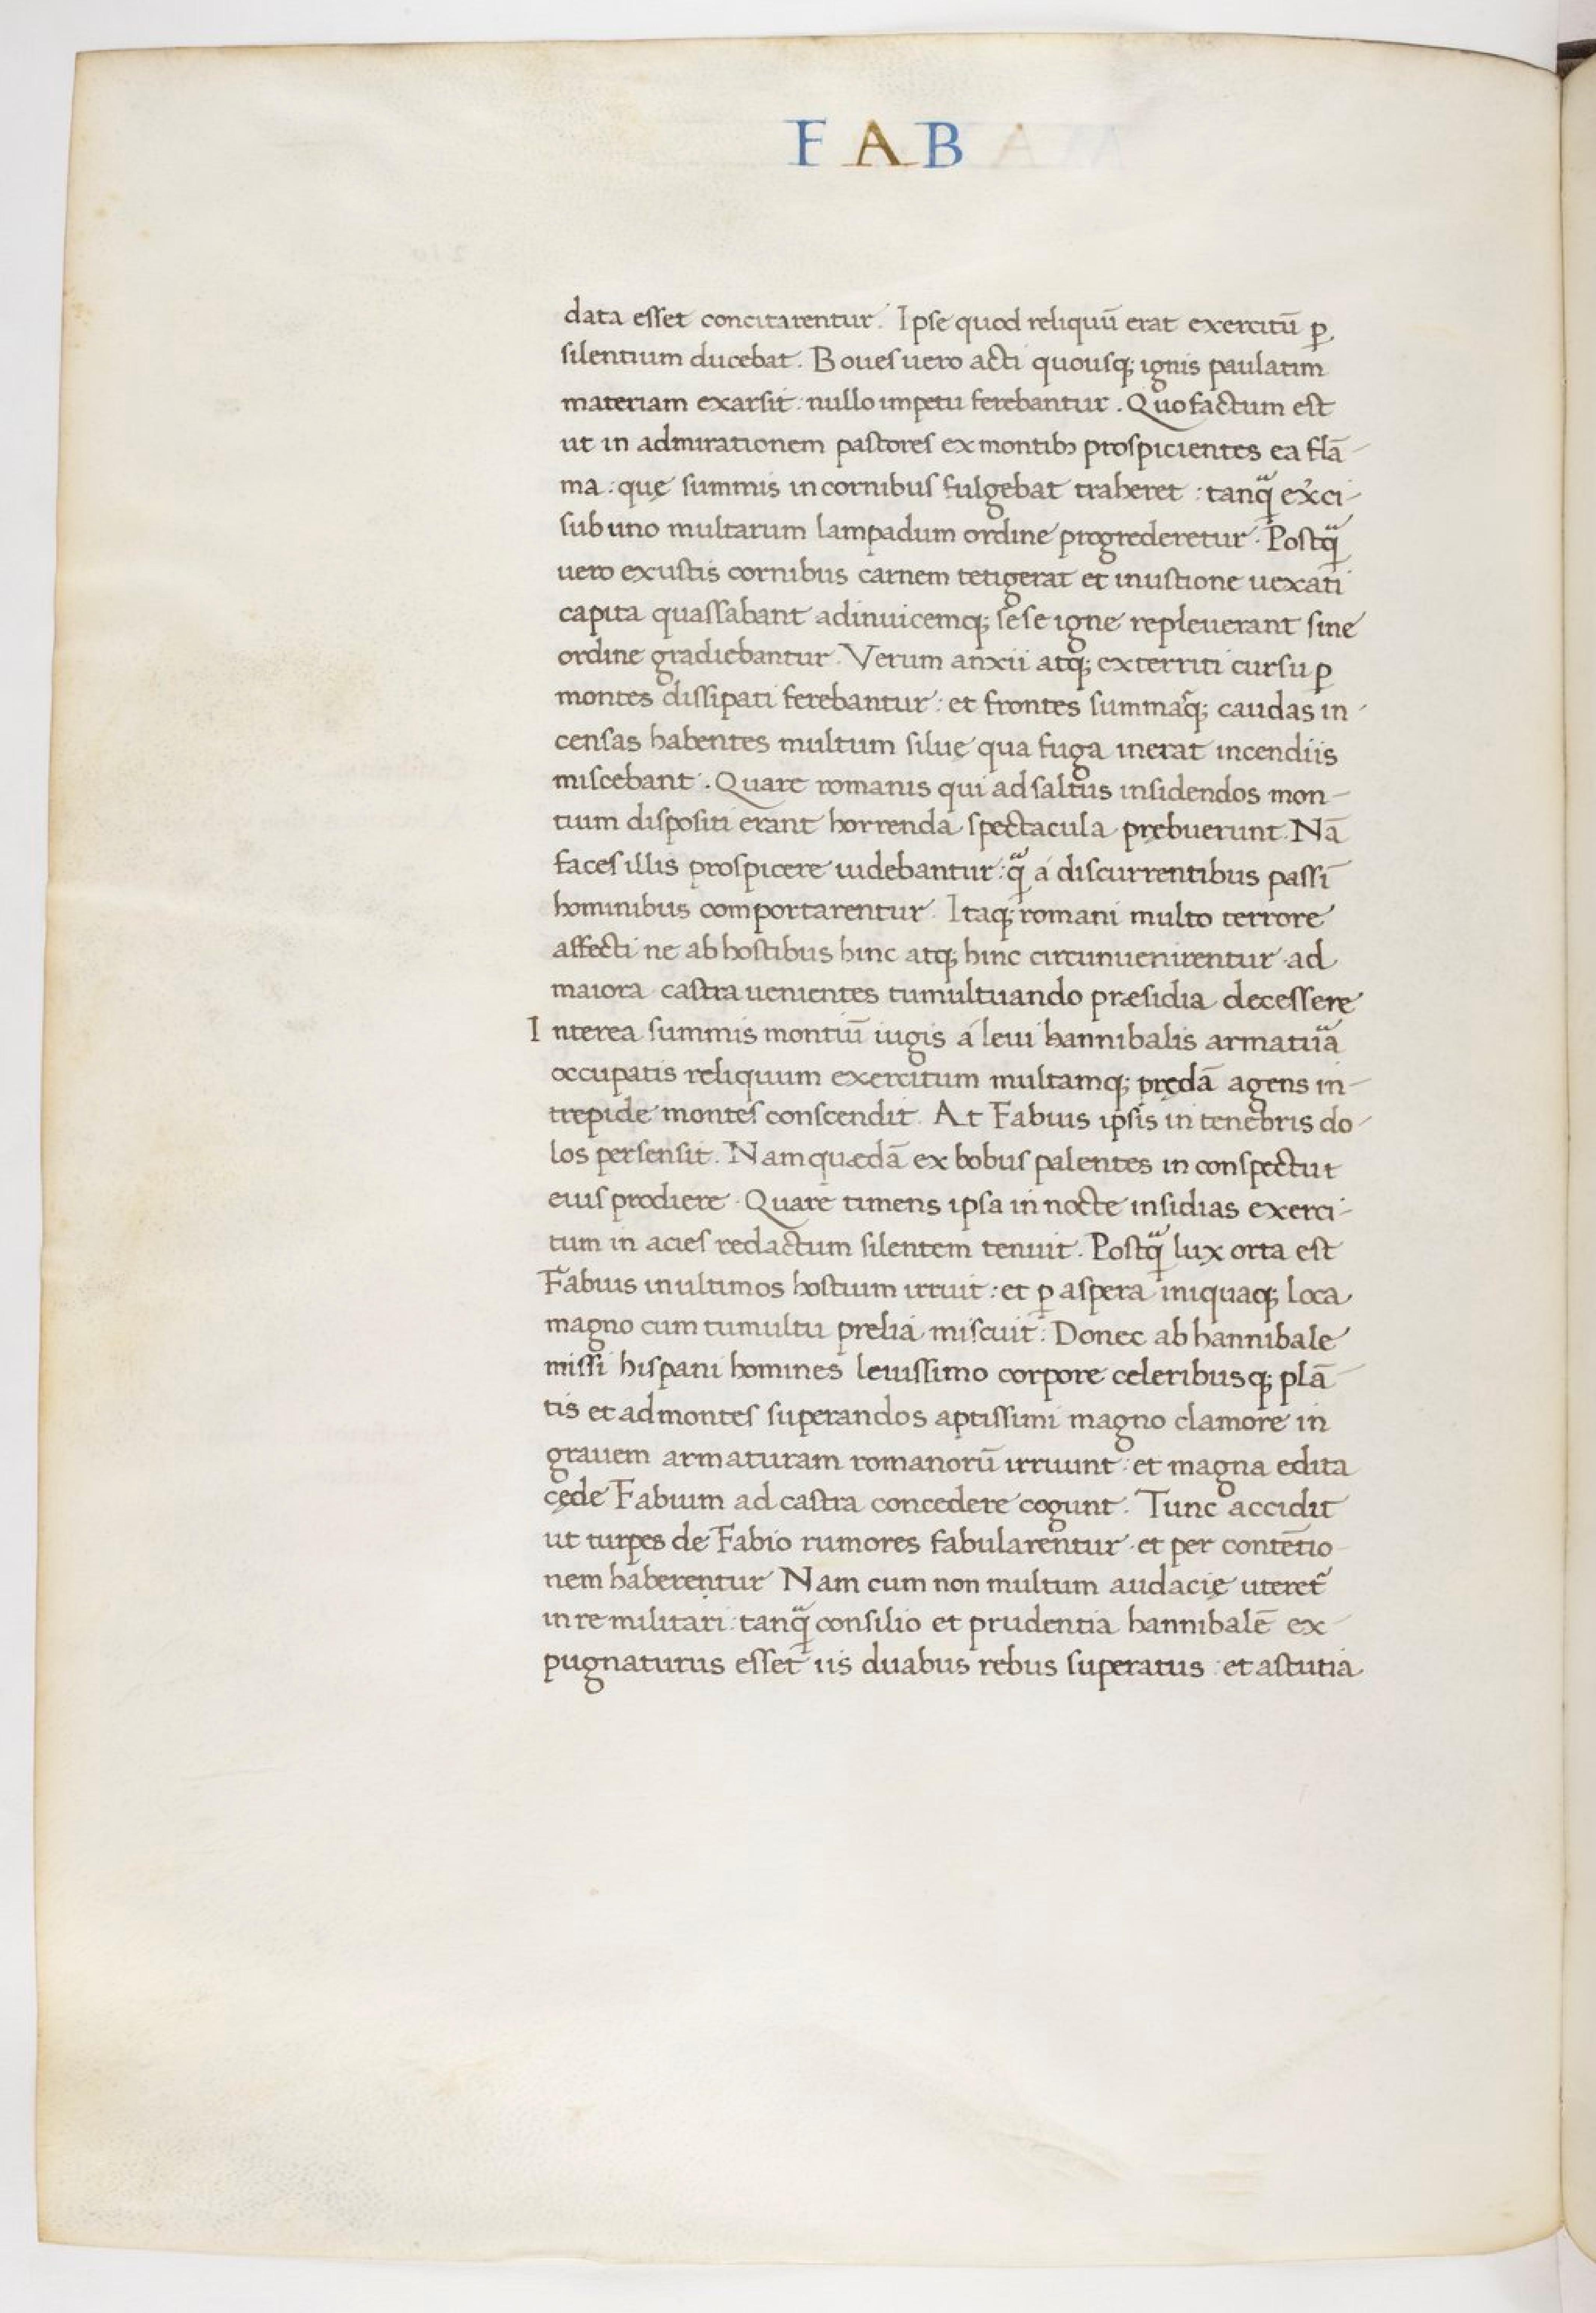 F A B
data esset concitarentur. Ipse quod reliquū erat exercitū ꝑ
silentium ducebat. Boues uero acti quousq; ignis paulatim
materiam exarsit: nullo impetu ferebantur. Quo factum est
ut in admirationem pastores ex montibꝫ prospicientes ea flā-
ma: quę summis in cornibus fulgebat traheret: tanq̃ exͤrci-
sub uno multarum lampadum ordine progrederetur. Postq̃
uero exustis cornibus carnem tetigerat et inustione uexati
capita quassabant adinuicemq; sese igne repleuerant sine
ordine gradiebantur. Verum anxii atq; exterriti cursu ꝑ
montes dissipati ferebantur: et frontes summasq; caudas in-
censas habentes multum siluę qua fuga inerat incendiis
miscebant. Quare romanis qui ad saltus insidendos mon-
tium dispositi erant horrenda spectacula prębuerunt. Nā
faces illis prospicere uidebantur: q̃ á discurrentibus passī
hominibus comportarentur. Itaq; romani multo terrore
affecti ne ab hostibus hinc atq; hinc circunuenirentur ad
maiora castra uenientes tumultuando præsidia decessere
Interea summis montiū iugis á leui hannibalis armatura
occupatis reliquum exercitum multamq; prędā agens in-
trepide montes conscendit. At Fabius ipsis in tenebris do-
los persensit. Nam quædā ex bobus palentes in conspectu
eius prodiere. Quare timens ipsa in nocte insidias exerci-
tum in acies redactum silentem tenuit. Postq̃ lux orta est
Fabius in ultimos hostium irruit: et ꝑ aspera iniquaq; loca
magno cum tumultu prelia miscuit: Donec ab hannibale
missi hispani homines leuissimo corpore celeribusq; plā-
tis et ad montes superandos aptissimi magno clamore in
grauem armaturam romanorū irruunt: et magna edita
cęde Fabium ad castra concedere cogunt. Tunc accidit
ut turpes de Fabio rumores fabularentur et per contētio-
nem haberentur Nam cum non multum audacię uteret᷑
in re militari: tanq̃ consilio et prudentia hannibalē ex-
pugnaturus esset iis duabus rebus superatus: et astutia